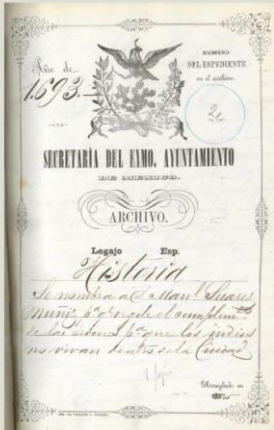 Año de
1.693.
NUMERO
DEL ESPEDIENTE
en el archivo.
2
SECRETARÍA DEL EXMO. AYUNTAMIENTO
DE MEXICO.
ARCHIVO.
Legajo Esp.
Historia
Se nombra a D. Man.l Suares
Muñiz pa. q vigile el cumplim.to
de las ordens pa. que los indios
no vivan dentro de la Ciudad
Arreglado en